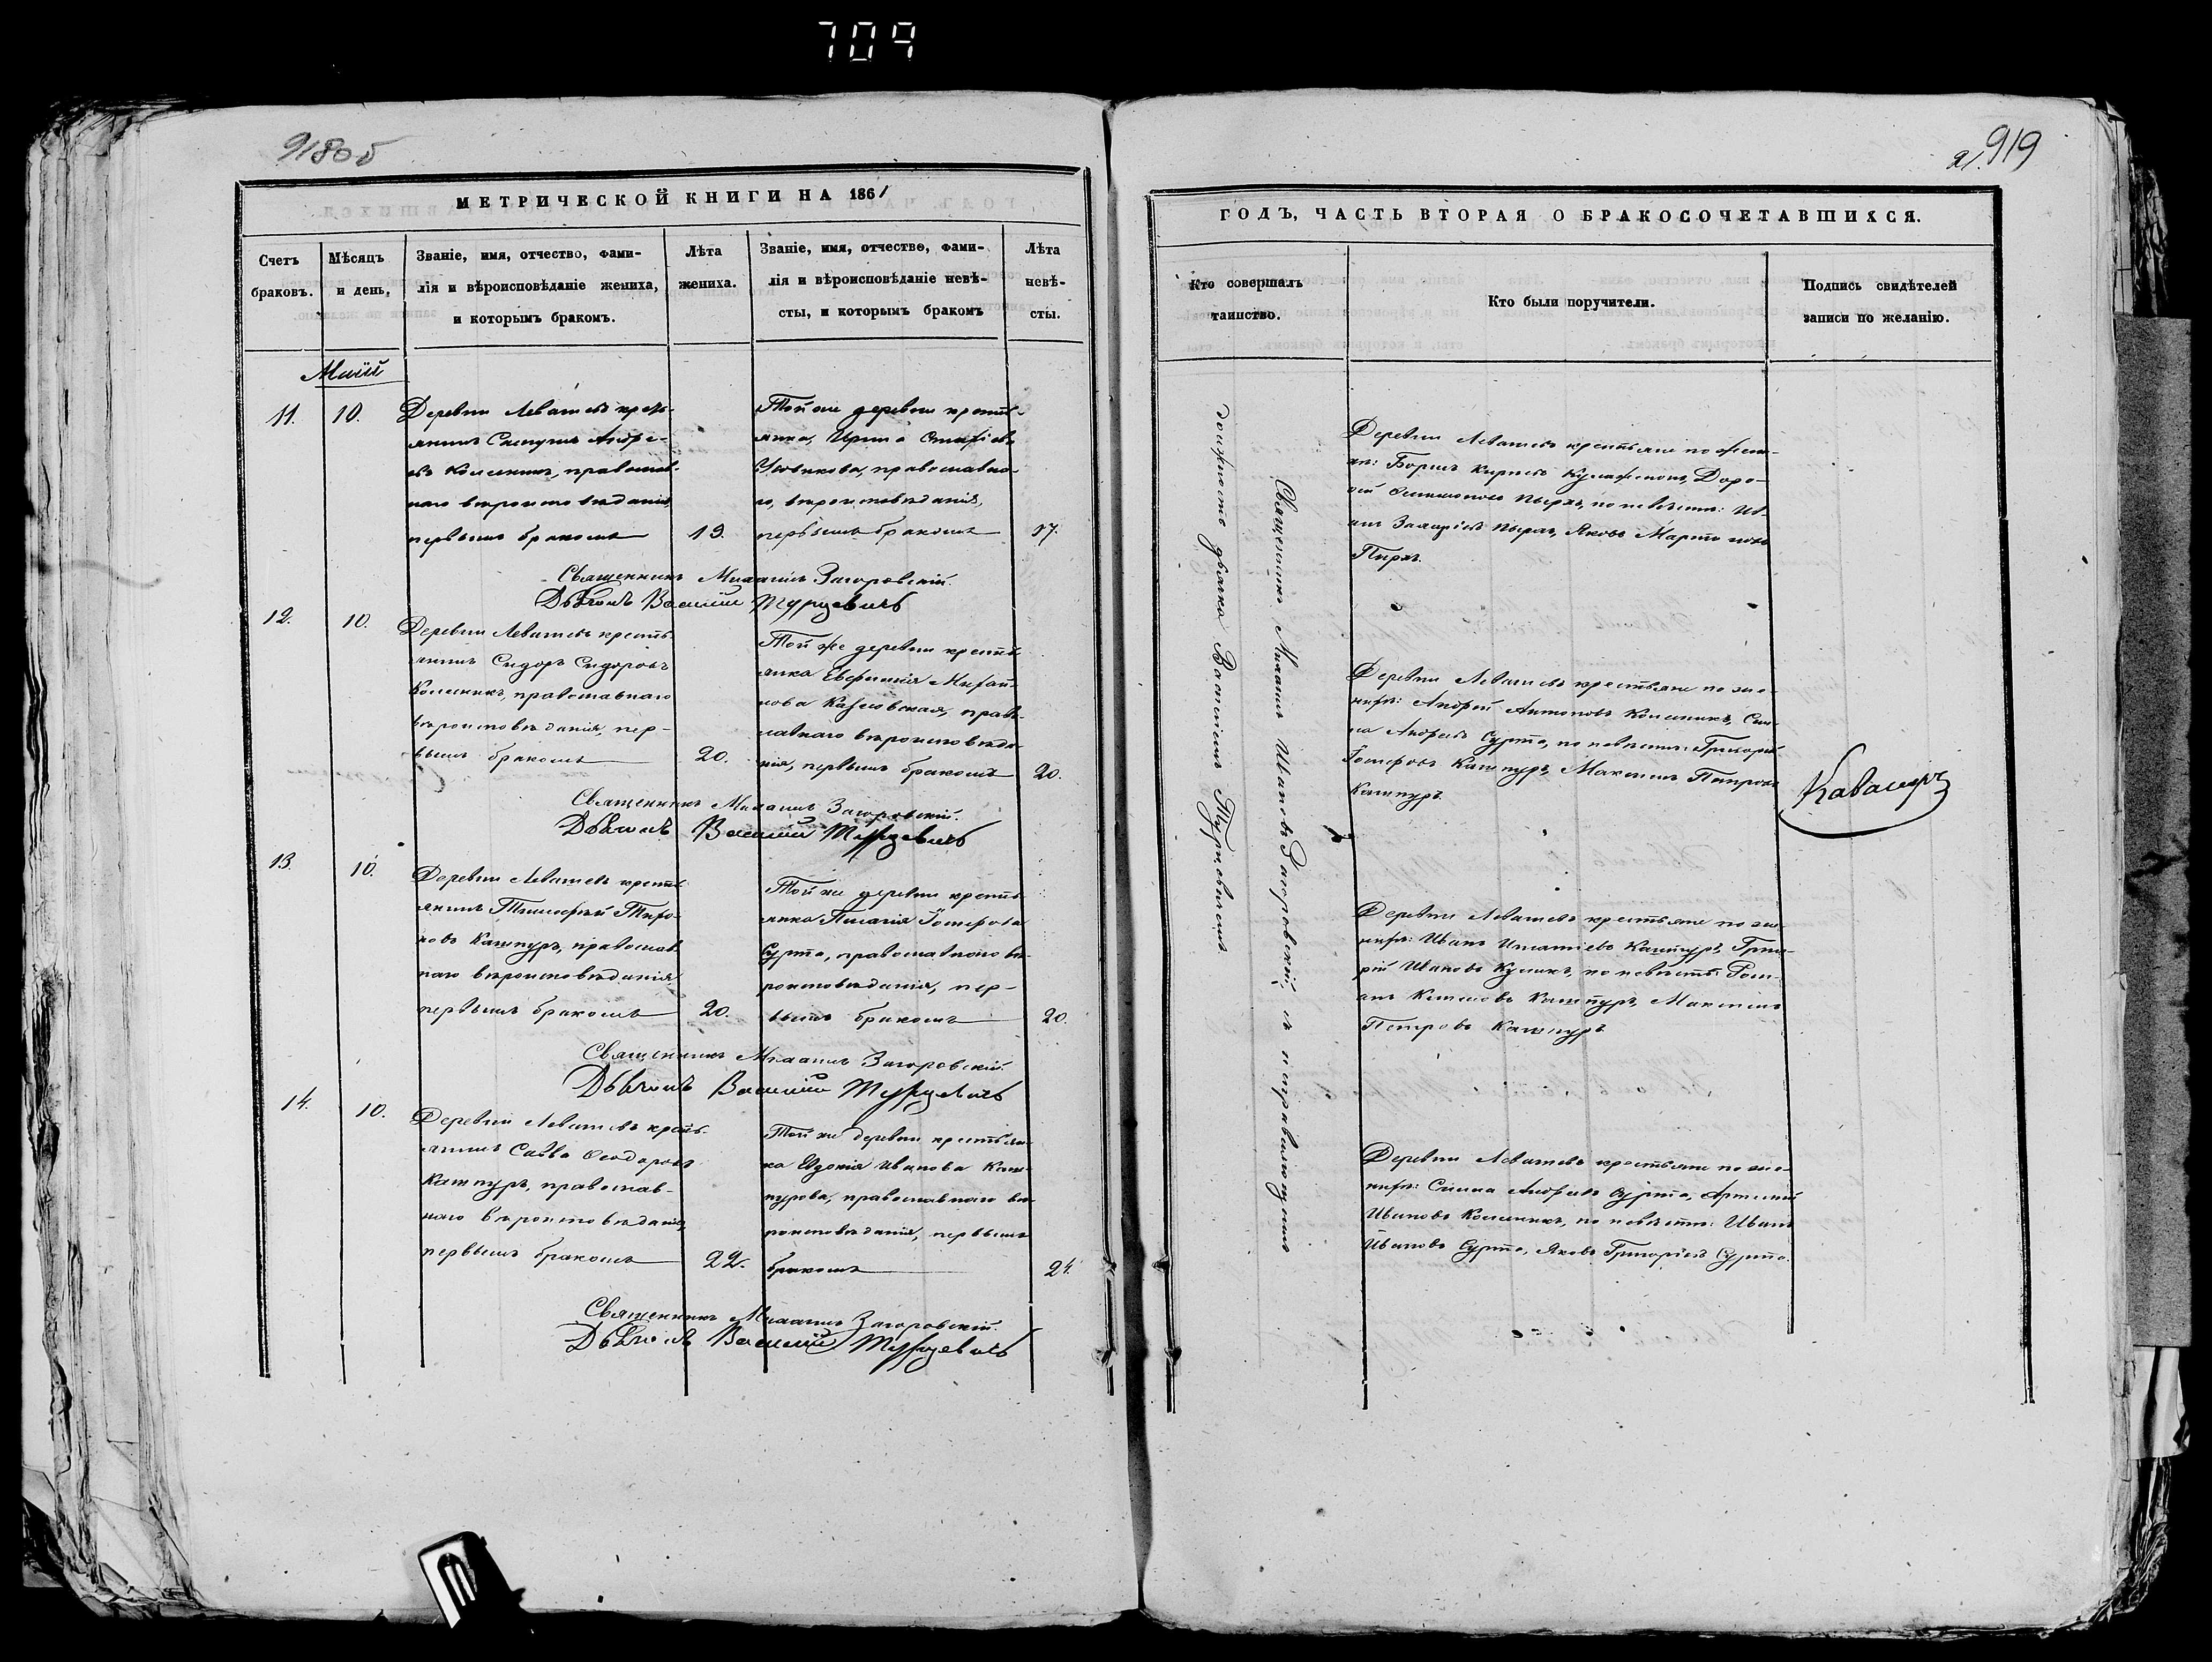 709
918об
МЕТРИЧЕСКОЙ КНИГИ НА 1861
Счетъ браковъ.
Мѣсяцъ и день.
Званіе, имя, отчество, фами-
лія и вѣроисповѣданіе жениха,
и которымъ бракомъ.
Лѣта
жениха.
Званіе, имя, отчество, фами-
лія и вѣроисповѣданіе невѣ-
сты, и которымъ бракомъ
Лѣта
невѣ-
сты.
Маій
11.
10.
Деревни Левашевъ кресть-
янинъ Андре-
евъ Колесникъ, православ-
наго вѣроисповѣданія,
первымъ бракомъ
19.
Той же деревни кресть-
янка, Ирина
православна-
го, вѣроисповѣданія,
первымъ бракомъ
17.
Священникъ Михаилъ Загоровскій.
Дьячокъ Василій Турцевичъ
12.
10.
Деревни Левашевъ кресть-
янинъ Сидоръ Сидоровъ
Колесникъ, православнаго
вѣроисповѣданія, пер-
вымъ бракомъ
20.
Той же деревни кресть-
янка Евфимія Михаи-
лова Козловская, право-
славнаго вѣроисповѣда-
нія, первымъ бракомъ
20.
Священникъ Михаилъ Загоровскій.
Дьячокъ Василій Турцевичъ
13.
10.
Деревни Левашевъ кресть-
янинъ Тимофей
Кашпуръ, православ-
наго вѣроисповѣданія
первымъ бракомъ
20.
Той же деревни кресть-
янка Пелагія Іосифова
Сурто, православнаго вѣ-
роисповѣданія, пер-
вымъ бракомъ
20.
Священникъ Михаилъ Загоровскій.
Дьячокъ Василій Турцевичъ
14.
10.
Деревни Левашевъ кресть-
янинъ Савва Ѳеодоровъ
Кашпуръ, православ-
наго вѣроисповѣданія,
первымъ бракомъ
22.
Той же деревни крестьян-
ка Евдокія Иванова Каш-
пурова, православнаго вѣ-
роисповѣданія, первымъ
бракомъ
24.
Священникъ Михаилъ Загоровскій.
Дьячокъ Василій Турцевичъ
919
ГОДЪ, ЧАСТЬ ВТОРАЯ О БРАКОСОЧЕТАВШИХСЯ.
Кто совершалъ
таинство.
Кто были поручители.
Подпись свидѣтелей
записи по желанію.
Священникъ Михаилъ Ивановъ Загоровскій, съ исправляющимъ
должность дьячка Василіемъ Турцевичемъ.
Деревни Левашевъ крестьяне по жени-
хѣ: Борисъ Доро-
фей Пырхъ, по невѣстѣ: Ив-
анъ Пырхъ, Яковъ Мартиновъ
Пырхъ.
Деревни Левашевъ крестьяне по же-
нихѣ: Андрей Антоновъ Колесникъ, Сим-
Андреевъ Сурто, по невѣстѣ: Григорій
Іосифовъ Кашпуръ, Максимъ Петровъ
Кашпуръ.
Деревни Левашевъ крестьяне по же-
нихѣ: Иванъ Игнатіевъ Кашпуръ, Григо-
рій Ивановъ Куликъ, по невѣстѣ: Ром-
анъ Кашпуръ, Максимъ
Петровъ Кашпуръ
Деревни Левашевъ крестьяне по же-
нихѣ: Андреевъ Сурто, Артемій
Ивановъ Колесникъ, по невѣстѣ: Иванъ
Ивановъ Сурто, Яковъ Григоріевъ Сурто.